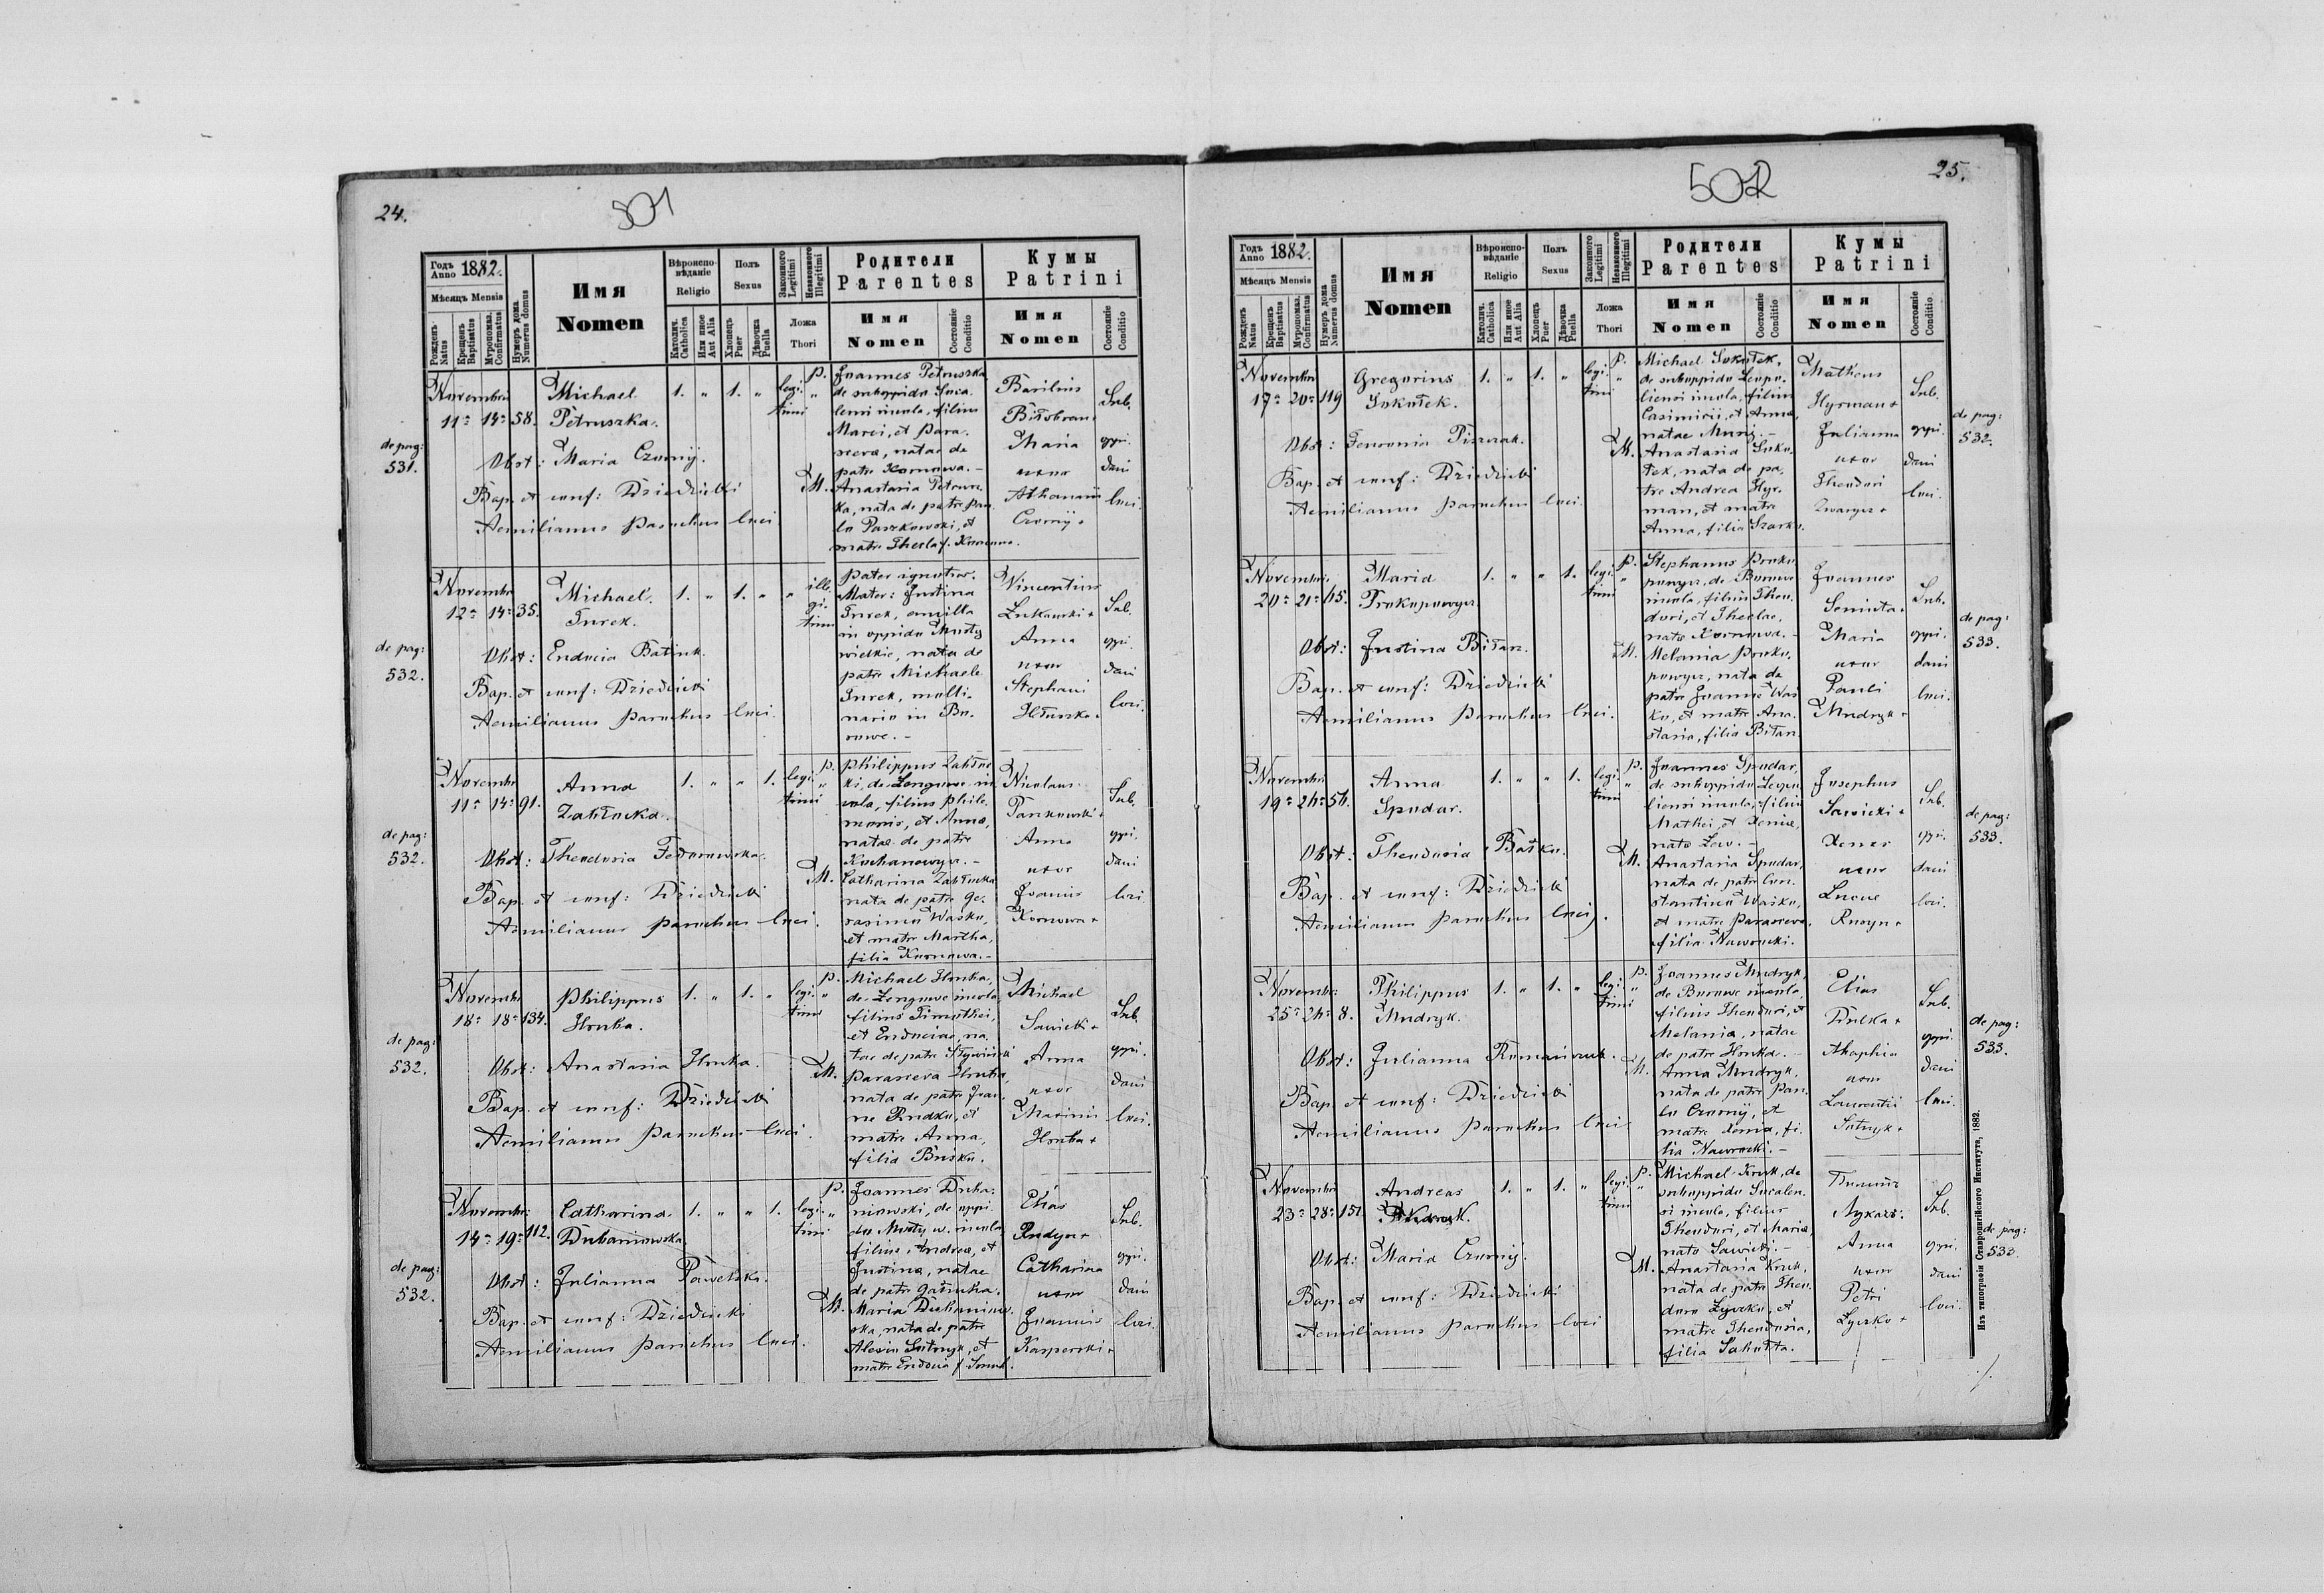 24.
501
Годъ Anno 1882.
Мѣсяцъ Mensis
Рожденъ Natus
Крещенъ Baptisatus
Мvропомаз. Confirmatus
Нумеръ дома Numerus domus
Имя Nomen
Вѣроиспо-вѣданіе Religio
Католич. Catholica
Или иное Aut Alia
Полъ Sexus
Хлопецъ Puer
Дѣвочка Puella
Законного Legitimi
Незаконного Illegitimi
Ложа Thori
Родители Parentes
Имя Nomen
Состояніе Conditio
Кумы Patrini
Имя Nomen
Состояніе Conditio
de pag: 531.
Novembri
11a 14a 58.
Michael
Petruszka.
1. „ 1. „ legi- „
timi
Obst: Maria Czornij.
Bap. et conf: Dziedzicki
Aemilianus parochus loci
P. Joannes Petruszka
de suboppido Soca-
lensi incola, filius
Marci, et Para-
scevae, natae de
patre Kornowa.-
M. Anastasia Petrusz-
ka, nata de patre Pau-
lo Paszkowski, et
matre Thecla f. Kornowa.
Basilius
Maria
uxor
Athanasii
Czornij +
Sub-
oppi-
dani
loci.
de pag: 532.
Novembri
12a 14a 35.
Michael.
Turek.
1. „ 1. „ „ ille-
gi-
timi
Obst: Eudocia Batiuk.
Bap. et conf: Dziedzicki
Aemilianus parochus loci.
Pater ignotus.
Mater: Justina
Turek, ancilla
in oppido Mosty
wielkie, nata de
patre Michaele
Turek, molli-
nario in Bo-
rowe.-
Vincentius
Anna
uxor
Stephani
Sub-
oppi-
dani
loci.
de pag: 532.
Novembri
11a 14a 91.
Anna
Zahłocka.
1. „ „ 1. legi- „
timi
Obst: Theodosia Fedorowska.
Bap. et conf: Dziedzicki
Aemilianus parochus loci.
P. Philippus Zahłoc-
ki, de Zengowe in-
cola, filius Phile-
monis, et Annae,
natae de patre
Kochanowycz.-
M. Catharina Zahłocka
nata de patre Ge-
rasimo Wasko,
et matre Martha,
filia Kornowa.-
Nicolaus
Pankowski +
Anna
uxor
Joannis
Kornowa +
Sub-
oppi-
dani
loci.
de pag: 532.
Novembri
18a 18a 134.
Philippus
Hruba.
1. „ 1. „ legi- „
timi
Obst: Anastasia Hruba.
Bap. et conf: Dziedzicki
Aemilianus parochus loci.
P. Michael Hruba,
de Zengowe incola,
filius Timothei,
et Eudociae, na-
tae de patre
M. Parasceva Hruba,
nata de patre Joan-
ne Rudko, et
matre Anna,
filia Busko.
Michael
Sawicki +
Anna
uxor
Maximi
Hruba +
Sub-
oppi-
dani
loci.
de pag: 532.
Novembri
14a 19a 112.
Catharina
Dubaniowska.
1. „ „ 1. legi- „
timi
Obst: Julianna
Bap. et conf: Dziedzicki
Aemilianus parochus loci.
P. Joannes Duba-
niowski, de oppi-
do Mosty w. incola,
filius Andreae, et
Justinae, natae
de patre
M. Maria Dubaniow-
ska, nata de patre
Alexio Sutnyk, et
matre Eudocia f.
Elias
Rudyn +
Catharina
uxor
Joannis
Kasperski +
Sub-
oppi-
dani
loci.
502
25.
Годъ Anno 1882.
Мѣсяцъ Mensis
Рожденъ Natus
Крещенъ Baptisatus
Мvропомаз. Confirmatus
Нумеръ дома Numerus domus
Имя Nomen
Вѣроиспо-вѣданіе Religio
Католич. Catholica
Или иное Aut Alia
Полъ Sexus
Хлопецъ Puer
Дѣвочка Puella
Законного Legitimi
Незаконного Illegitimi
Ложа Thori
Родители Parentes
Имя Nomen
Состояніе Conditio
Кумы Patrini
Имя Nomen
Состояніе Conditio
Novembri
17a 20a 119
Gregorius
Sokołek.
1. „ 1. „ legi- „
timi
Obst: Fewronia Piszczak.
Bap. et conf: Dziedzicki
Aemilianus parochus loci.
P. Michael Sokołek,
de suboppido Leopo-
liensi incola, filius
Casimirii, et Annae,
natae
M. Anastasia Soko-
łek, nata de pa-
tre Andrea Hyr-
man, et matre
Anna, filia Szarko.
Matheus
Hyrman +
Julianna
uxor
Theodori
Sub-
oppi-
dani
loci.
de pag: 532.
Novembri
20a 21a 115.
Maria
Prokopowycz.
1. „ „ 1. legi- „
timi
Obst: Justina Biłan.
Bap. et conf: Dziedzicki
Aemilianus parochus loci.
P. Stephanus Proko-
powycz, de Borowe
incola, filius Theo-
dori, et Theclae,
nata Kornowa.-
M. Melania Proko-
powycz, nata de
patre Joanne Was-
ko, et matre Ana-
stasia, filia Biłan.
Joannes
Maria
uxor
Pauli
Mudryk +
Sub-
oppi-
dani
loci.
de pag: 533.
Novembri
19a 24a 54.
Anna
Spodar.
1. „ „ 1. legi- „
timi
Obst: Theodosia Baśko.
Bap. et conf: Dziedzicki
Aemilianus parochus loci.
P. Joannes Spodar,
de suboppido Leopo-
liensi incola, filius
Mathei, et Xeniae,
nata Lew.-
M. Anastasia Spodar,
nata de patre Con-
stantino Wasko,
et matre Parasceva,
filia Nawrocki.
Josephus
Sawicki +
Xenia
uxor
Lucae
Rusyn +
Sub-
oppi-
dani
loci.
de pag: 533.
Novembri
25a 26a 8.
Philippus
Mudryk.
1. „ 1. „ legi- „
timi
Obst: Julianna Romaniuk.
Bap. et conf: Dziedzicki
Aemilianus parochus loci.
P. Joannes Mudryk,
de Borowe incola,
filius Theodori, et
Melania, natae
de patre Hruba.-
M. Anna Mudryk,
nata de patre Pau-
lo Czornij, et
matre Xenia, fi-
lia Nawrocki.-
Elias
Agaphia
uxor
Laurentii
Sutnyk +
Sub-
oppi-
dani
loci.
de pag: 533.
Novembri
23a 28a 151
Andreas
Kruk.
1. „ 1. „ legi- „
timi
Obst: Maria Czornij.
Bap. et conf: Dziedzicki
Aemilianus parochus loci
P. Michael Kruk, de
suboppido Socalen-
si incola, filius
Theodori, et Mariae,
nata Sawicki.-
M. Anastasia Kruk,
nata de patre Theo-
doro Łyczko, et
matre Theodosia,
filia Sakułta.
Лукачъ.
Anna
uxor
Petri
Łyczko +
Sub-
oppi-
dani
loci.
de pag: 533.
Изъ типографіи Ставропигійского Института, 1882.
./.